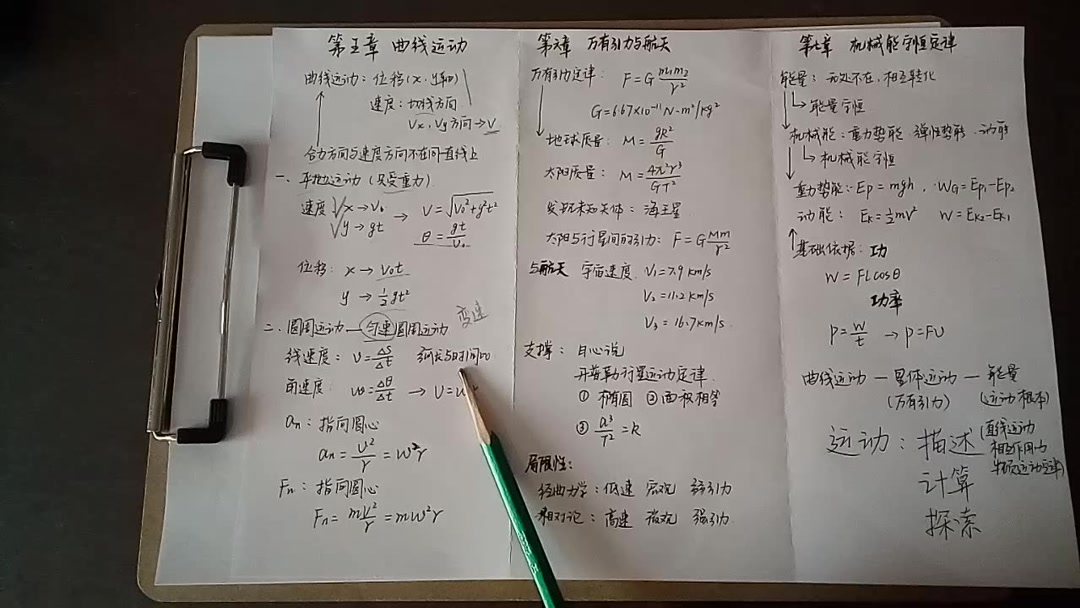 第五章 曲线运动
曲线运动：位移(x，y轴)
速度：切线方向
Vx，Vy方向→V
合力方向与速度方向不在同一直线上
一、平抛运动（只受重力）
速度 x→V₀ → V=√V₀²+g²t²
y→gt θ=gt/V₀
位移：x→V₀t
y→½gt²
二、圆周运动—匀速圆周运动 变速
线速度：V=ΔS/Δt 弧长与时间
角速度：ω=Δθ/Δt →V=ω
an：指向圆心
an=V²/r=ω²r
Fn：指向圆心
Fn=mV²/r=mω²r
第六章 万有引力与航天
万有引力定律：F=G m₁m₂/r²
G=6.67×10⁻¹¹N·m²/kg²
地球质量：M=gR²/G
太阳质量：M=4π²r³/GT²
发现未知天体：海王星
太阳与行星间的引力：F=G Mm/r²
与航天 宇宙速度 V₁=7.9km/s
V₂=11.2km/s
V₃=16.7km/s
支撑：日心说
开普勒行星运动定律
① 椭圆 ② 面积相等
③ a³/T²=k
局限性：
经典力学：低速 宏观 弱引力
相对论：高速 微观 强引力
第七章 机械能守恒定律
能量：无处不在，相互转化
能量守恒
机械能：重力势能 弹性势能 动能
机械能守恒
重力势能：Ep=mgh，WG=Ep₁-Ep₂
动能：Ek=½mV² W=Ek₂-Ek₁
基础依据：功
W=FLcosθ
功率
P=W/t →P=FV
曲线运动—星体运动—能量
（万有引力）（运动根本）
运动：描述（直线运动
相互作用力
牛顿运动定律）
计算
探索